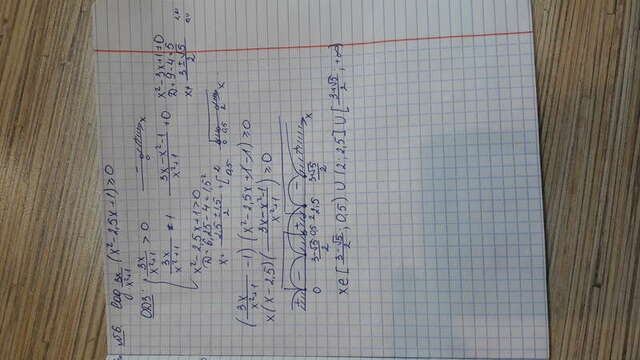 №6 log_{3x/(x²+1)} (x² - 2,5x + 1) ≥ 0
ОДЗ: { 3x/(x²+1) > 0
3x/(x²+1) ≠ 1   (3x - x² - 1)/(x²+1) ≠ 0   x² - 3x + 1 ≠ 0
D = 9 - 4 = 5
x ≠ (3 ± √5)/2
x² - 2,5x + 1 > 0
D = 6,25 - 4 = 1,5²
x = (2,5 ± 1,5)/2 = [ 2 0,5
0 0,5 2 x
(3x/(x²+1) - 1)(x² - 2,5x + 1 - 1) ≥ 0
x(x - 2,5)((3x - x² - 1)/(x²+1)) ≥ 0
0 (3-√5)/2 0,5 2 2,5 (3+√5)/2 x
x∈[(3-√5)/2; 0,5) ∪ (2; 2,5] ∪ [(3+√5)/2; +∞)